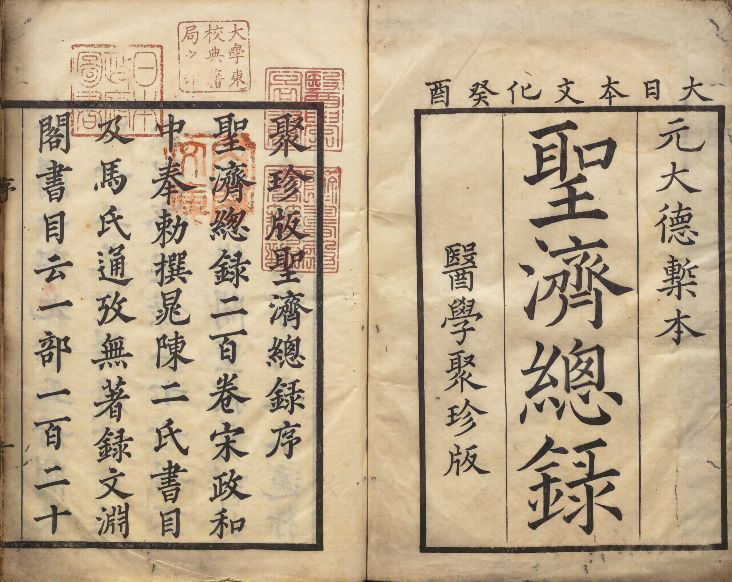 大日本文化癸酉
元大德槧本
聖濟總録
醫學聚珍版
大學東
校典籍
局之印
日本
政府
圖書
聚珍版聖濟總録序
聖濟總録二百卷宋政和
中奉勅撰晁陳二氏書目
及馬氏通攷無著録文淵
閣書目云一部一百二十
序
一